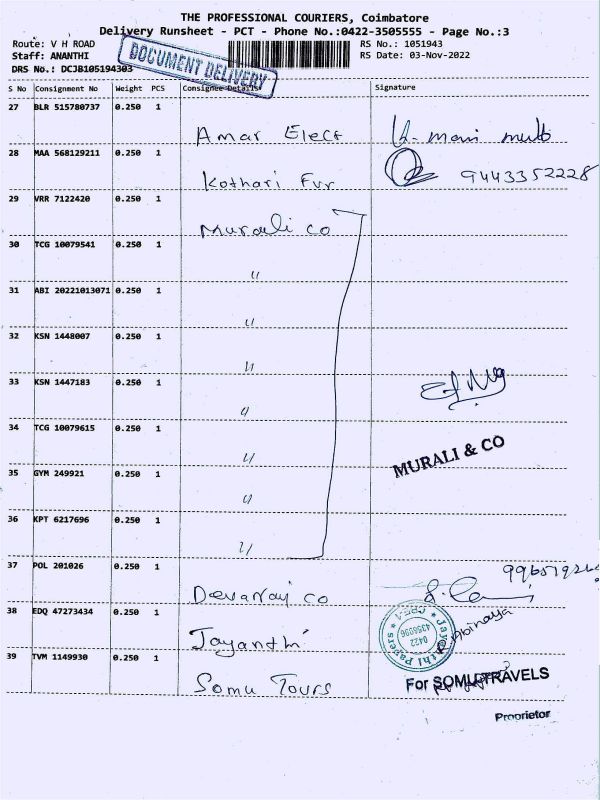 THE PROFESSIONAL COURIERS, Coimbatore
Delivery Runsheet - PCT - Phone No.:0422-3505555 - Page No.:3
Route: V H ROAD
Staff: ANANTHI
DRS No.: DCJB105194303
DOCUMENT DELIVERY
RS No.: 1051943
RS Date: 03-Nov-2022
S No Consignment No Weight PCS Consignee Details Signature
27 BLR 515780737 0.250 1
Amar Elect
28 MAA 568129211 0.250 1
Kothari Fur 9443352228
29 VRR 7122420 0.250 1
Murali co
30 TCG 10079541 0.250 1
"
31 ABI 20221013071 0.250 1
"
32 KSN 1448007 0.250 1
"
33 KSN 1447183 0.250 1
"
34 TCG 10079615 0.250 1
" MURALI & CO
35 GYM 249921 0.250 1
"
36 KPT 6217696 0.250 1
"
37 POL 201026 0.250 1
Devaraj co
38 EDQ 47273434 0.250 1
Jayanthi
Jayanthi Papers
0422
4356096
Abinaya
39 TVM 1149930 0.250 1
Somu Tours
For SOMU TRAVELS
Proprietor